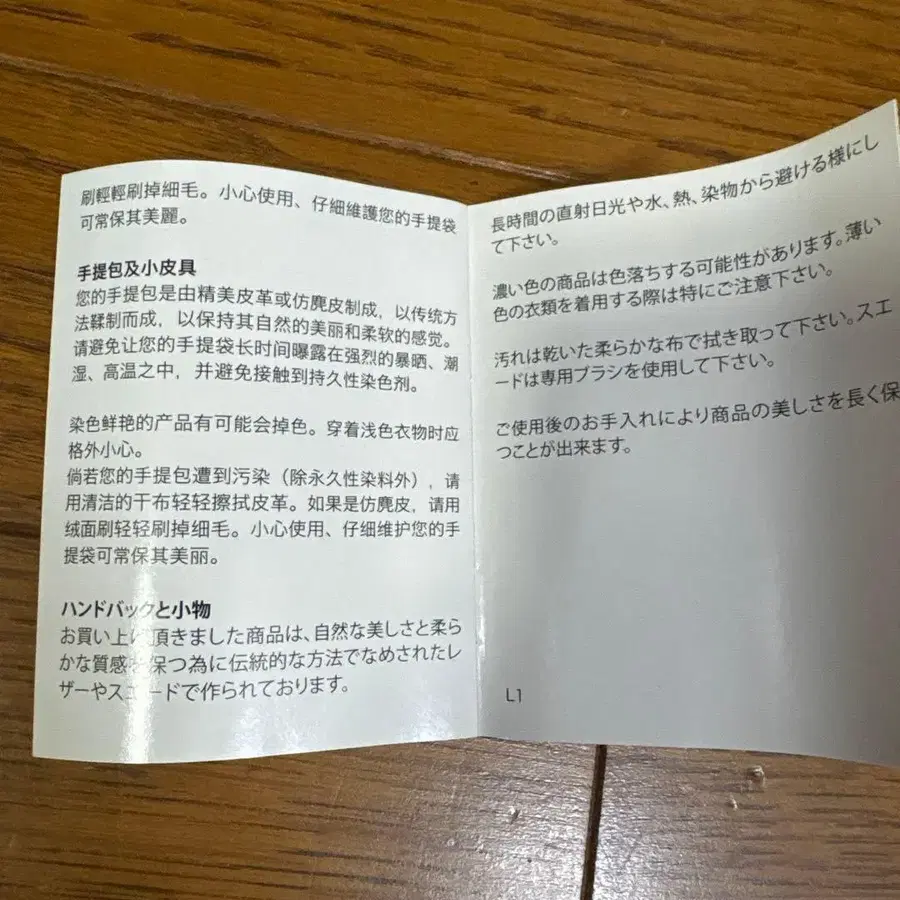 刷輕輕刷掉細毛。小心使用、仔細維護您的手提袋
可常保其美麗。
手提包及小皮具
您的手提包是由精美皮革或仿麂皮制成，以传统方
法鞣制而成，以保持其自然的美丽和柔软的感觉。
请避免让您的手提袋长时间曝露在强烈的暴晒、潮
湿、高温之中，并避免接触到持久性染色剂。
染色鲜艳的产品有可能会掉色。穿着浅色衣物时应
格外小心。
倘若您的手提包遭到污染（除永久性染料外），请
用清洁的干布轻轻擦拭皮革。如果是仿麂皮，请用
绒面刷轻轻刷掉细毛。小心使用、仔细维护您的手
提袋可常保其美丽。
ハンドバックと小物
お買い上げ頂きました商品は、自然な美しさと柔ら
かな質感を保つ為に伝統的な方法でなめされたレ
ザーやスエードで作られております。
長時間の直射日光や水、熱、染物から避ける様にし
て下さい。
濃い色の商品は色落ちする可能性があります。薄い
色の衣類を着用する際は特にご注意下さい。
汚れは乾いた柔らかな布で拭き取って下さい。スエ
ードは専用ブラシを使用して下さい。
ご使用後のお手入れにより商品の美しさを長く保
つことが出来ます。
L1